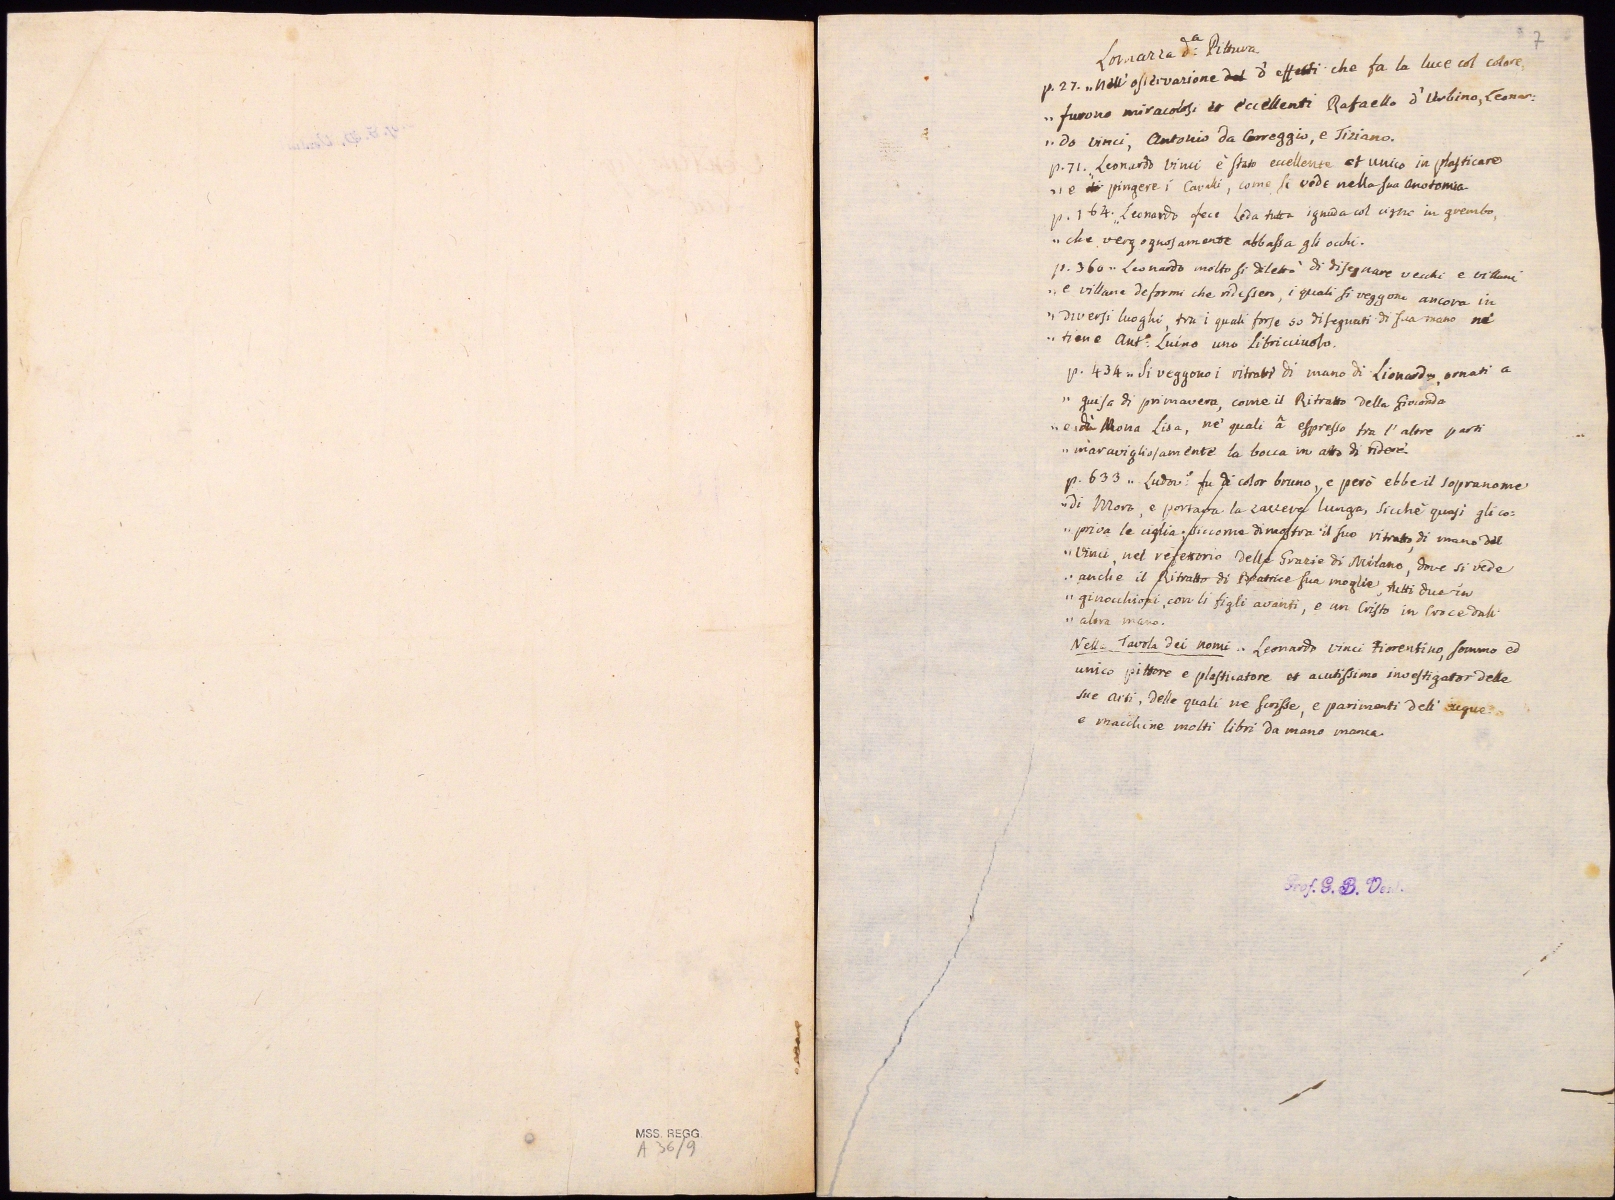 7
Lomazza d.a Pittura
p. 27. „ Nell' osservazione del d' effetti che fa la luce col colore,
„ furono miracolosi et eccellenti Rafaello d' Urbino, Leonar:
„ do vinci, Antonio da Correggio, e Tiziano.
p. 71. „ Leonardo vinci è stato eccellente et unico in plasticare
„ e di pingere i Cavalli, come si vede nella sua Anotomia
p. 164. „ Leonardo fece Leda tutta ignuda col cigno in grembo,
„ che vergognosamente abbassa gli occhi.
p. 360 „ Leonardo molto si dilettò di disegnare vecchi e villani
„ e villane deformi che ridessero, i quali si veggono ancora in
„ diversi luoghi, tra i quali forse 50 disegnati di sua mano nè
„ tiene Ant.o Luino uno Libricciuolo.
p. 434 „ Si veggono i ritratti di mano di Lionardo, ornati a
„ guisa di primavera, come il Ritratto della Gioconda
„ e di Mona Lisa, ne' quali à espresso tra l' altre parti
„ maravigliosamente la bocca in atto di ridere.
p. 633 „ Ludov.o fu di color bruno, e però ebbe il sopranome
„ di Moro, e portava la zavera lunga, sicchè quasi gli co:
„ priva le ciglia, siccome dimostra il suo ritratto, di mano del
„ Vinci, nel refettorio delle Grazie di Milano, dove si vede
„ anche il Ritratto di Beatrice sua moglie, tutti due in
„ ginocchioni, con li figli avanti, e un Cristo in Croce dall'
„ altra mano.
Nella Tavola dei nomi „ Leonardo vinci Fiorentino, sommo ed
unico pittore e plasticatore et acutissimo investigator delle
sue arti, delle quali ne scrisse, e parimenti dell' acque
e macchine molti libri da mano manca
Prof. G. B.
MSS. REGG.
A 36/9